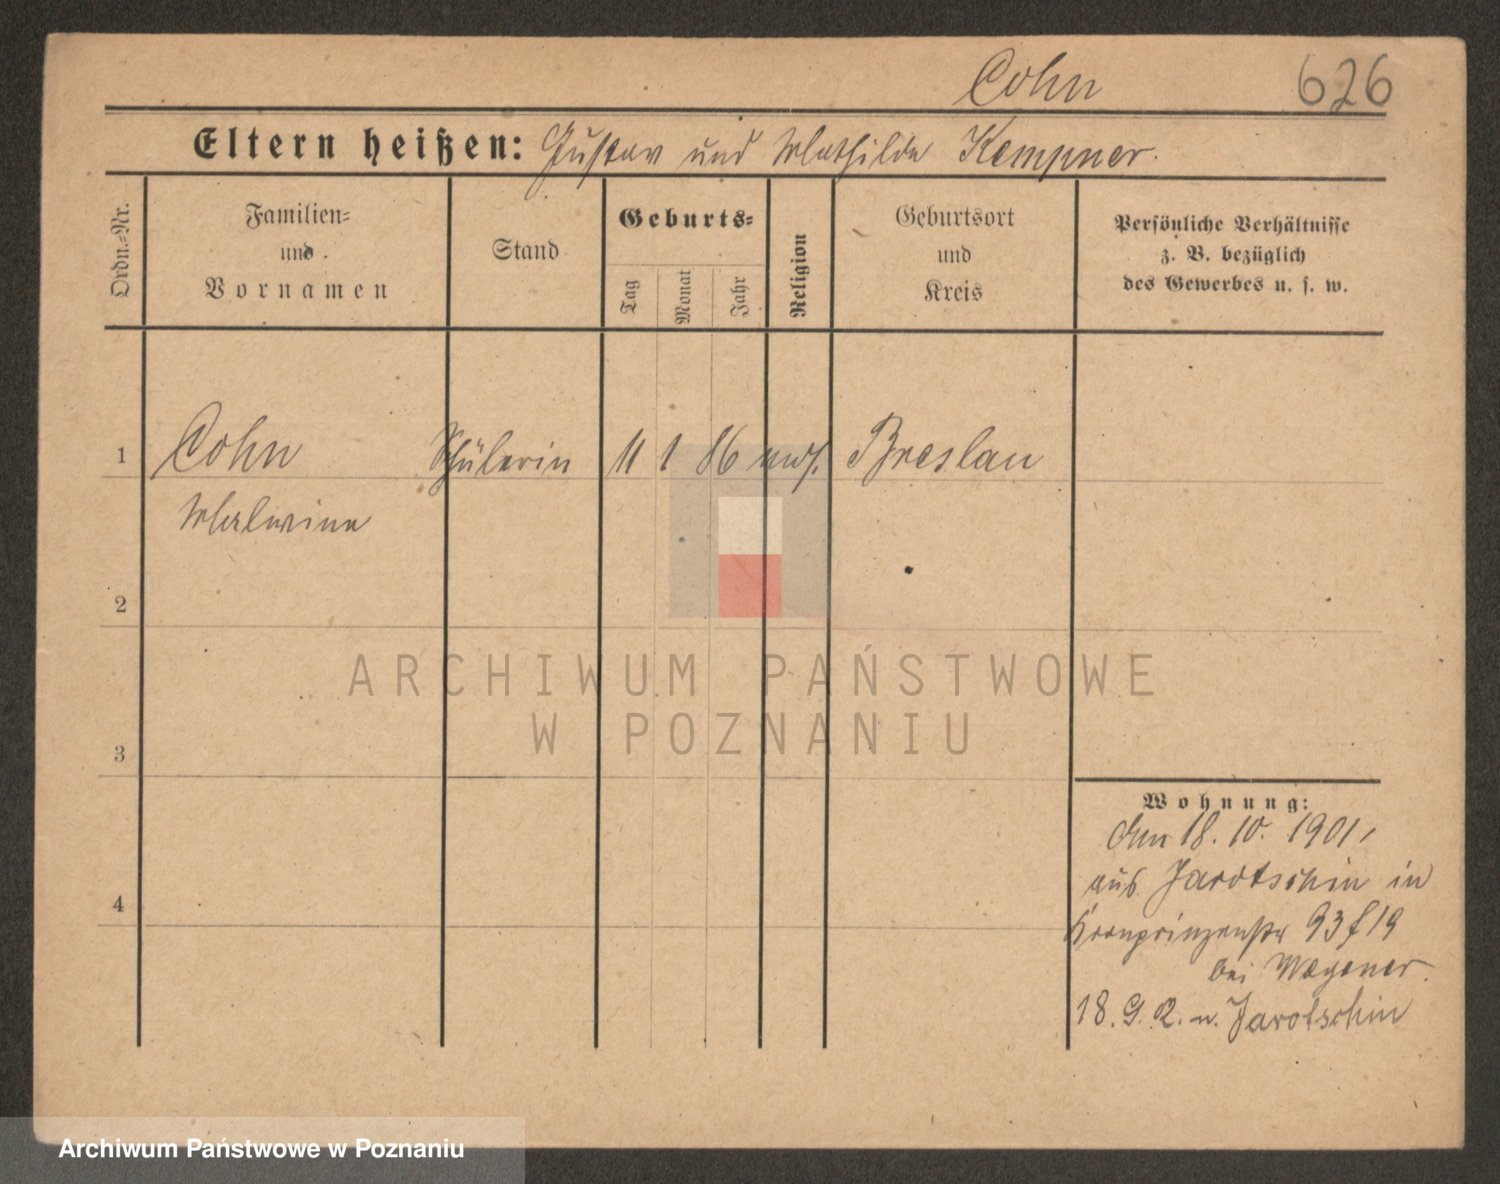 Cohn 626
Eltern heißen: Gustav und Mathilde Kempner.
Ordn.-Nr.
Familien-
und
Vornamen
Stand
Geburts-
Tag
Monat
Jahr
Religion
Geburtsort
und
Kreis
Persönliche Verhältnisse
z. B. bezüglich
des Gewerbes u. s. w.
1 Cohn Schülerin 11 1 86 mos. Breslau
Malwine
2
3
4
ARCHIWUM PAŃSTWOWE
W POZNANIU
Wohnung:
den 18. 10. 1901,
aus Jarotschin in
Kronprinzenstr 93 f 19
bei Wegener.
18. 9. 2. n. Jarotschin
Archiwum Państwowe w Poznaniu